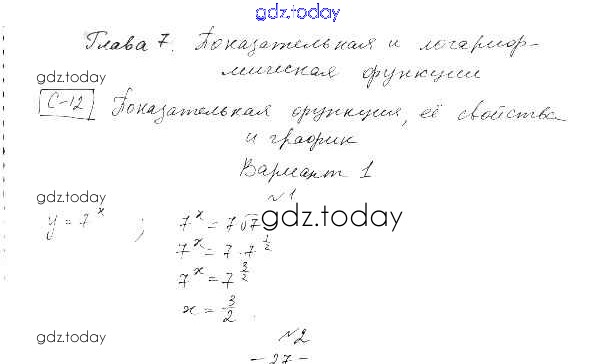 gdz.today
Глава 7. Показательная и логариф-
мическая функции
gdz.today
С-12 Показательная функция, её свойства
и график
Вариант 1
gdz.today
№1
y = 7^x ; 7^x = 7√7
gdz.today
7^x = 7 · 7^{1/2}
7^x = 7^{3/2}
x = 3/2.
gdz.today
№2
- 27 -